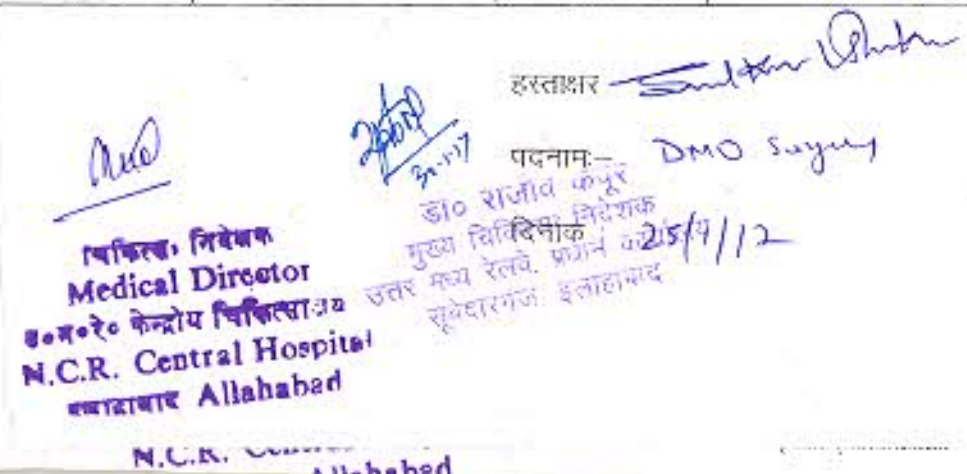 हस्ताक्षर
पदनामः- DMO
दिनांक 25/9/12
30-1-17
डा० राजीव कपूर
मुख्य चिकित्सा निदेशक
उत्तर मध्य रेलवे, प्रधान
सूबेदारगंज इलाहाबाद
चिकित्सा निदेशक
Medical Director
उ०म०रे० केन्द्रीय चिकित्सालय
N.C.R. Central Hospital
Allahabad
N.C.R.
Allahabad